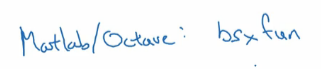 Matlab/Octave: bsxfun